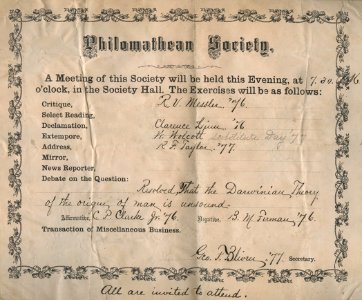 Philomathean Society,
A Meeting of this Society will be held this Evening, at 7.30.
o'clock, in the Society Hall. The Exercises will be as follows:
Critique, R. V. Messler '76.
Select Reading,
Declamation, Clarence '76
Extempore, W. Wolcott Day '77
Address, R. F. Taylor '77.
Mirror,
News Reporter,
Debate on the Question:
Resolved, That the Darwinian Theory
of the origin of man is unsound.
Affirmative, C. P. Clarke Jr. '76. Negative, B. M. '76.
Transaction of Miscellaneous Business.
Geo. '77. Secretary.
All are invited to attend.